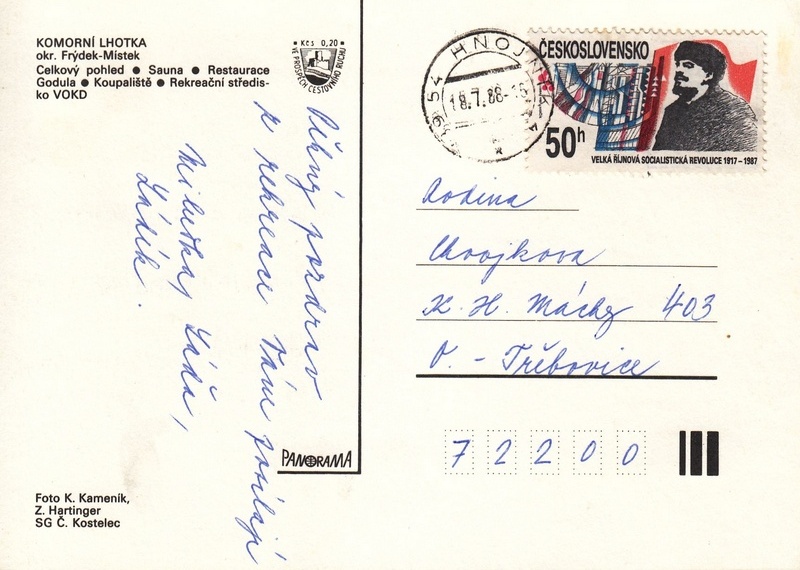 KOMORNÍ LHOTKA
okr. Frýdek-Místek
Celkový pohled ● Sauna ● Restaurace
Godula ● Koupaliště ● Rekreační středis-
ko VOKD
Kčs 0,20
VE PROSPĚCH CESTOVNÍHO RUCHU
HNOJNÍK
18.7.88-15
ČESKOSLOVENSKO
50h
VELKÁ ŘÍJNOVÁ SOCIALISTICKÁ REVOLUCE 1917–1987
Pěkný pozdrav
z rekreace Vám posílají
Miluška, Láďa,
Ládík.
Rodina
Chvojkova
K. H. Máchy 403
O. - Třebovice
72200
PANORAMA
Foto K. Kameník,
Z. Hartinger
SG Č. Kostelec